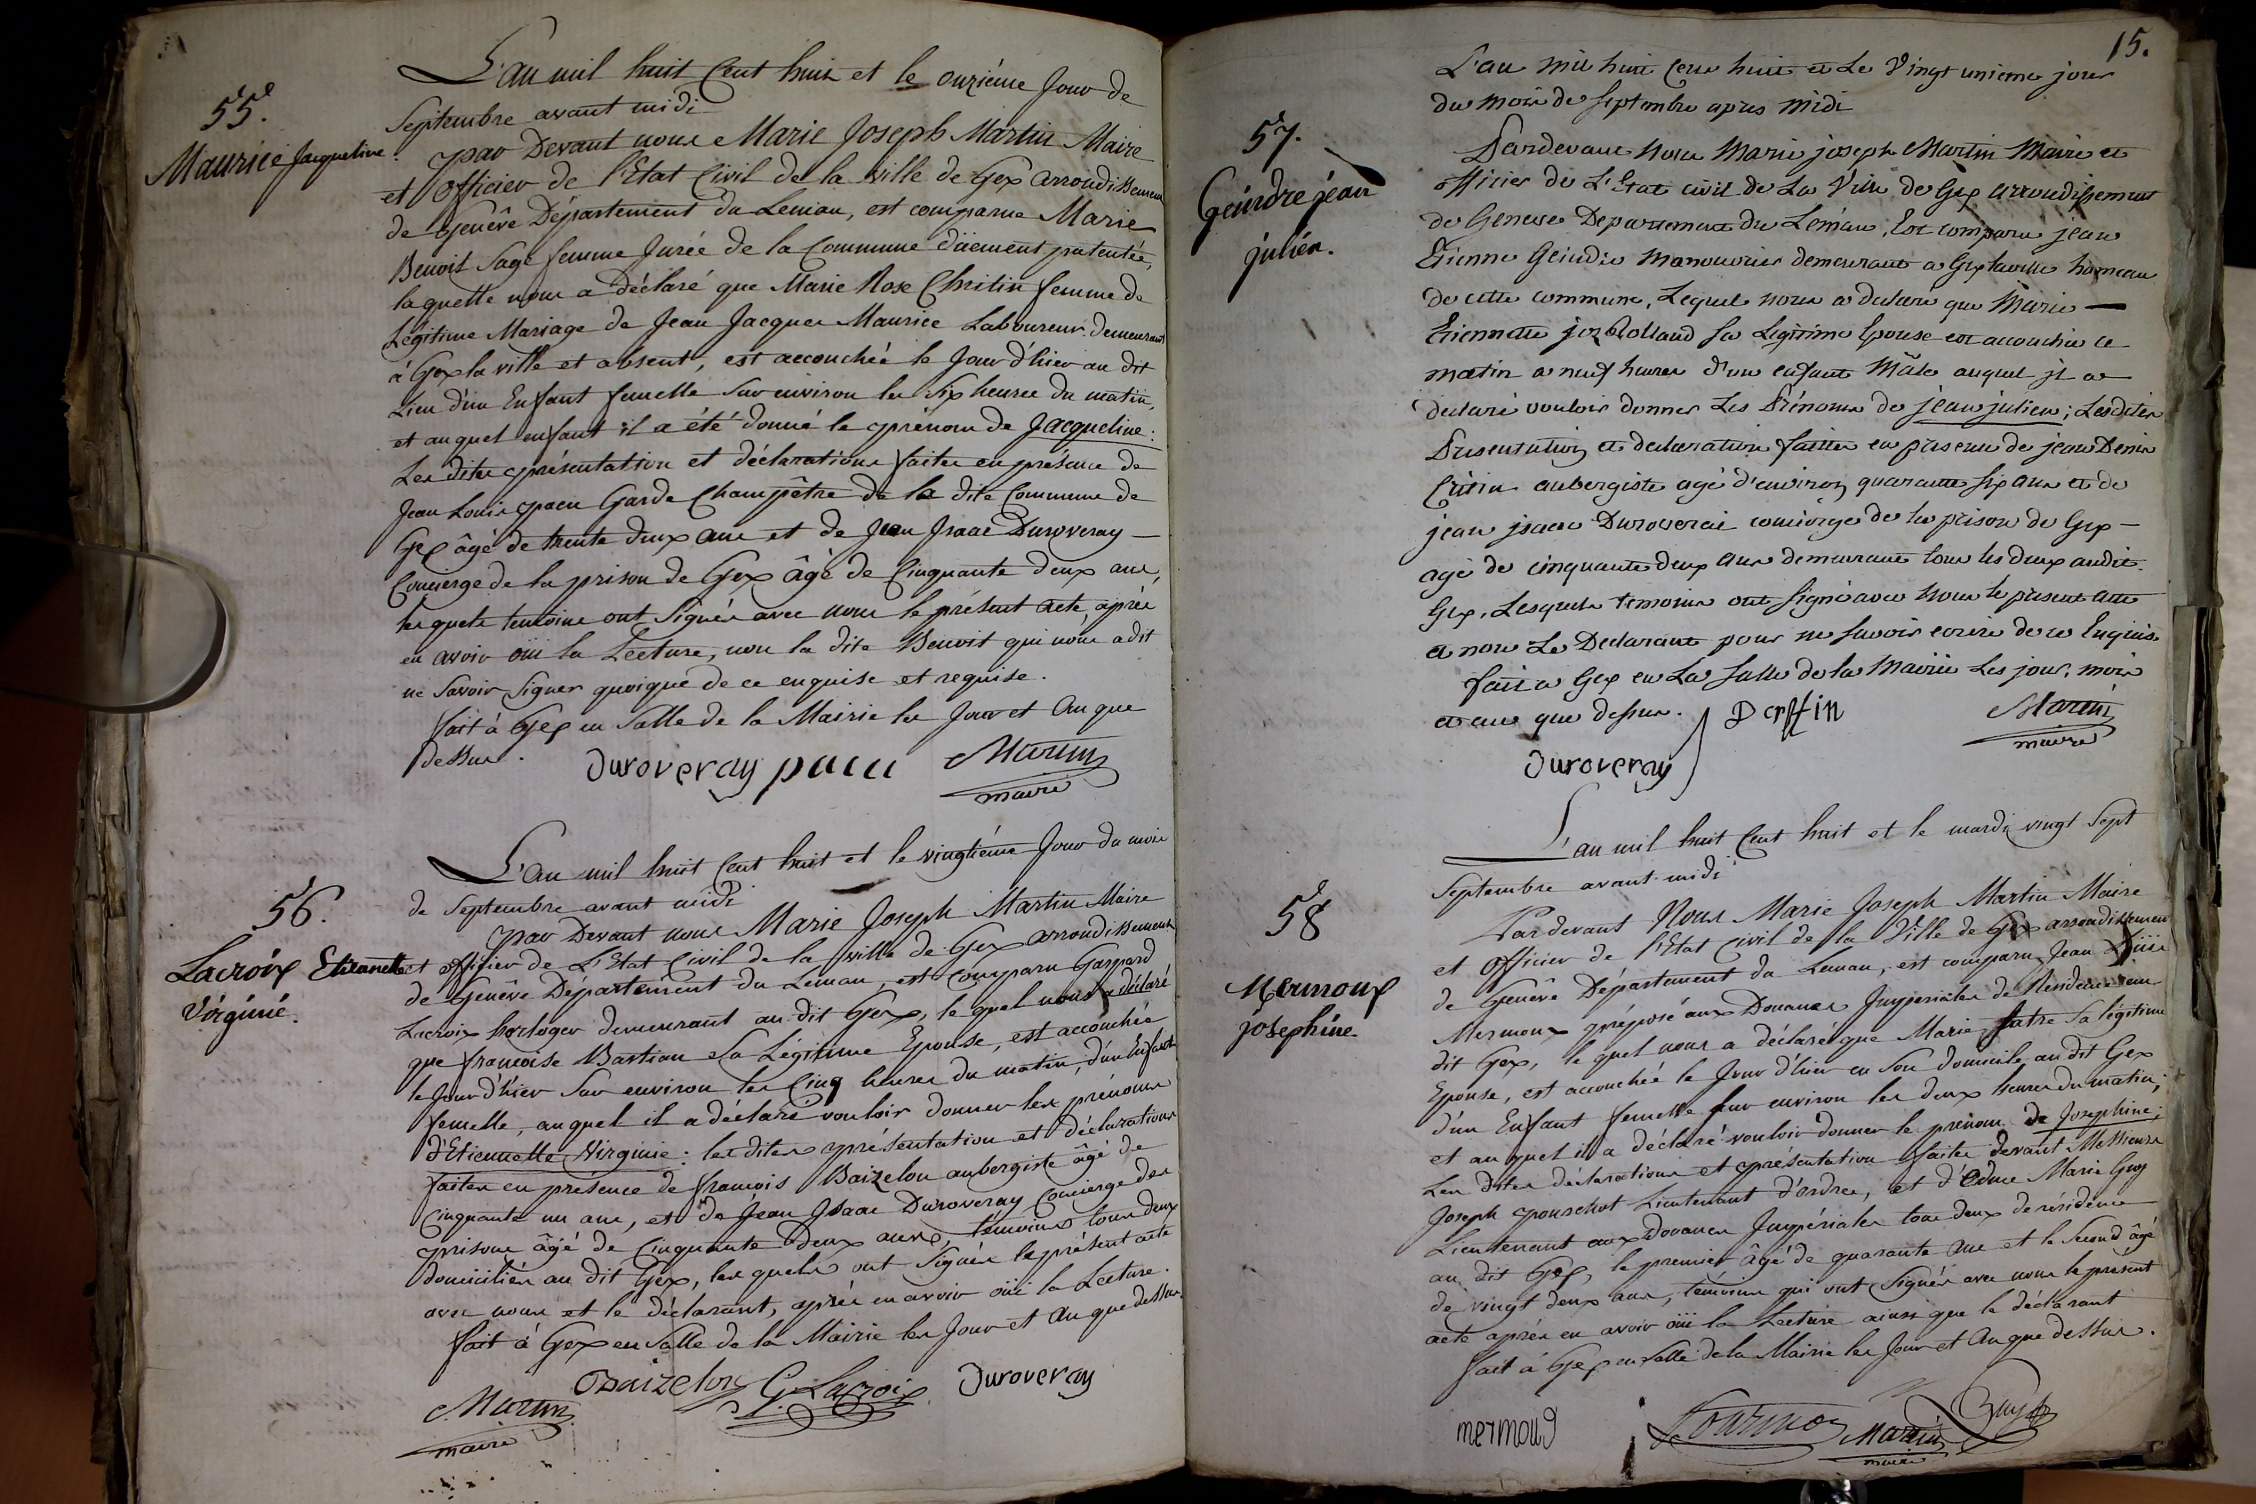 55.
Maurice Jacqueline.
L'an mil huit Cent huit et le onzième Jour de
Septembre avant midi
par Devant nous Marie Joseph Martin Maire
et Officier de l'Etat Civil de la ville de Gex arrondissement
de Genève Département du Leman, est comparue Marie
Benoit Sage femme Jurée de la Commune dûement patentée,
laquelle nous a déclaré que Marie Rose Chritin femme de
Légitime Mariage de Jean Jacques Maurice Laboureur demeurant
à Gex la ville et absent, est accouchée le Jour d'hier au dit
Lieu d'un Enfant femelle sur environ les six heures du matin,
et auquel enfant il a été donné le prénom de Jacqueline :
Les dites présentation et déclarations faites en présence de
Jean Louis pacu Garde Champêtre de la dite Commune de
Gex âgé de trente deux ans et de Jean Isaac Duroveray —
Concierge de la prison de Gex âgé de Cinquante deux ans,
les quels temoins ont Signés avec nous le présent acte, après
en avoir ouï la Lecture, non la dite Benoit qui nous a dit
ne Savoir Signer quoique de ce enquise et requise.
fait à Gex en Salle de la Mairie les Jour et An que
dessus.
Duroveray pacu Martin
maire
56.
Lacroix Etiennette
Virginie.
L'an mil huit Cent huit et le vingtième Jour du mois
de Septembre avant midi
par Devant nous Marie Joseph Martin Maire
et officier de L'Etat Civil de la ville de Gex arrondissement
de Genêve Département du Leman, est Comparu Gaspard
Lacroix horloger demeurant au dit Gex, le quel nous a déclaré
que françoise Bastian Sa Légitime Epouse, est accouchée
le Jour d'hier Sur environ les Cinq heures du matin, d'un Enfant
femelle, auquel il a déclaré vouloir donner les prénoms
d'Etiennette Virginie : les dites présentation et déclarations
faites en présence de françois Baizelon aubergiste âgé de
Cinquante un ans, et de Jean Isaac Duroveray Concierge des
prisons âgé de Cinquante deux ans, témoins tous deux
domiciliés au dit Gex, les quels ont Signés le présent acte
avec nous et le déclarant, après en avoir ouï la Lecture.
fait à Gex en Salle de la Mairie les Jour et An que dessus.
Baizelon G. Lacroix Duroveray
Martin
maire
15.
57.
Geindre jean
julien.
L'an mil huit Cent huit et Le Vingt unieme jour
du mois de Septembre apres midi
Pardevant Nous Marie joseph Martin Maire et
officier de L'Etat civil de La Ville de Gex arrondissement
de Geneve Departement du Leman, Est comparu jean
Etienne Geindre manouvrier demeurant a Gex laville hameau
de cette commune, Lequel nous a declaré que Marie —
Etiennette Rolland Sa Legitime Epouse est accouchée ce
matin a neuf heures d'un enfant Mâle auquel jl a
declaré vouloir donner Les Prénoms de jean julien ; Lesdites
Presentation et declaration faittes en presence de jean Denis
aubergiste agé d'environ quarante six ans et de
jean jsaac Duroverai concierge de la prison de Gex —
agé de cinquante deux ans demeurant tous les deux audit
Gex, Lesquels temoins ont Signé avec Nous le present acte
et non Le Declarant pour ne Savoir ecrire de ce Enquis
fait a Gex en La Salle de la Mairie Les jour, mois
et an que dessus.
Martin
maire
Duroveray
58
Mermoux
josephine
L'an mil huit Cent huit et le mardi vingt Sept
Septembre avant midi
Pardevant Nous Marie Joseph Martin Maire
et Officier de l'Etat Civil de la Ville de Gex arrondissement
de Genêve Département du Leman, est comparu Jean
Mermoux préposé aux Douanes Impériales de Résidence au
dit Gex, le quel nous a déclaré que Marie Sa légitime
Epouse, est accouchée le Jour d'hier en Son domicile au dit Gex
d'un Enfant femelle Sur environ les deux heures du matin,
et auquel il a déclaré vouloir donner le prénom de Josephine ;
Les dites déclarations et présentation faites devant Messieurs
Joseph pouschot Lieutenant d'ordres, et d'Edme Marie Guy
Lieutenant aux Douanes Impériales tous deux de résidence
au dit Gex, le premier âgé de quarante ans et le Second âgé
de vingt deux ans, témoins qui ont Signés avec nous le présent
acte après en avoir ouï la Lecture ainsi que le déclarant
fait à Gex en Salle de la Mairie les Jour et An que dessus.
mermoud Martin
maire